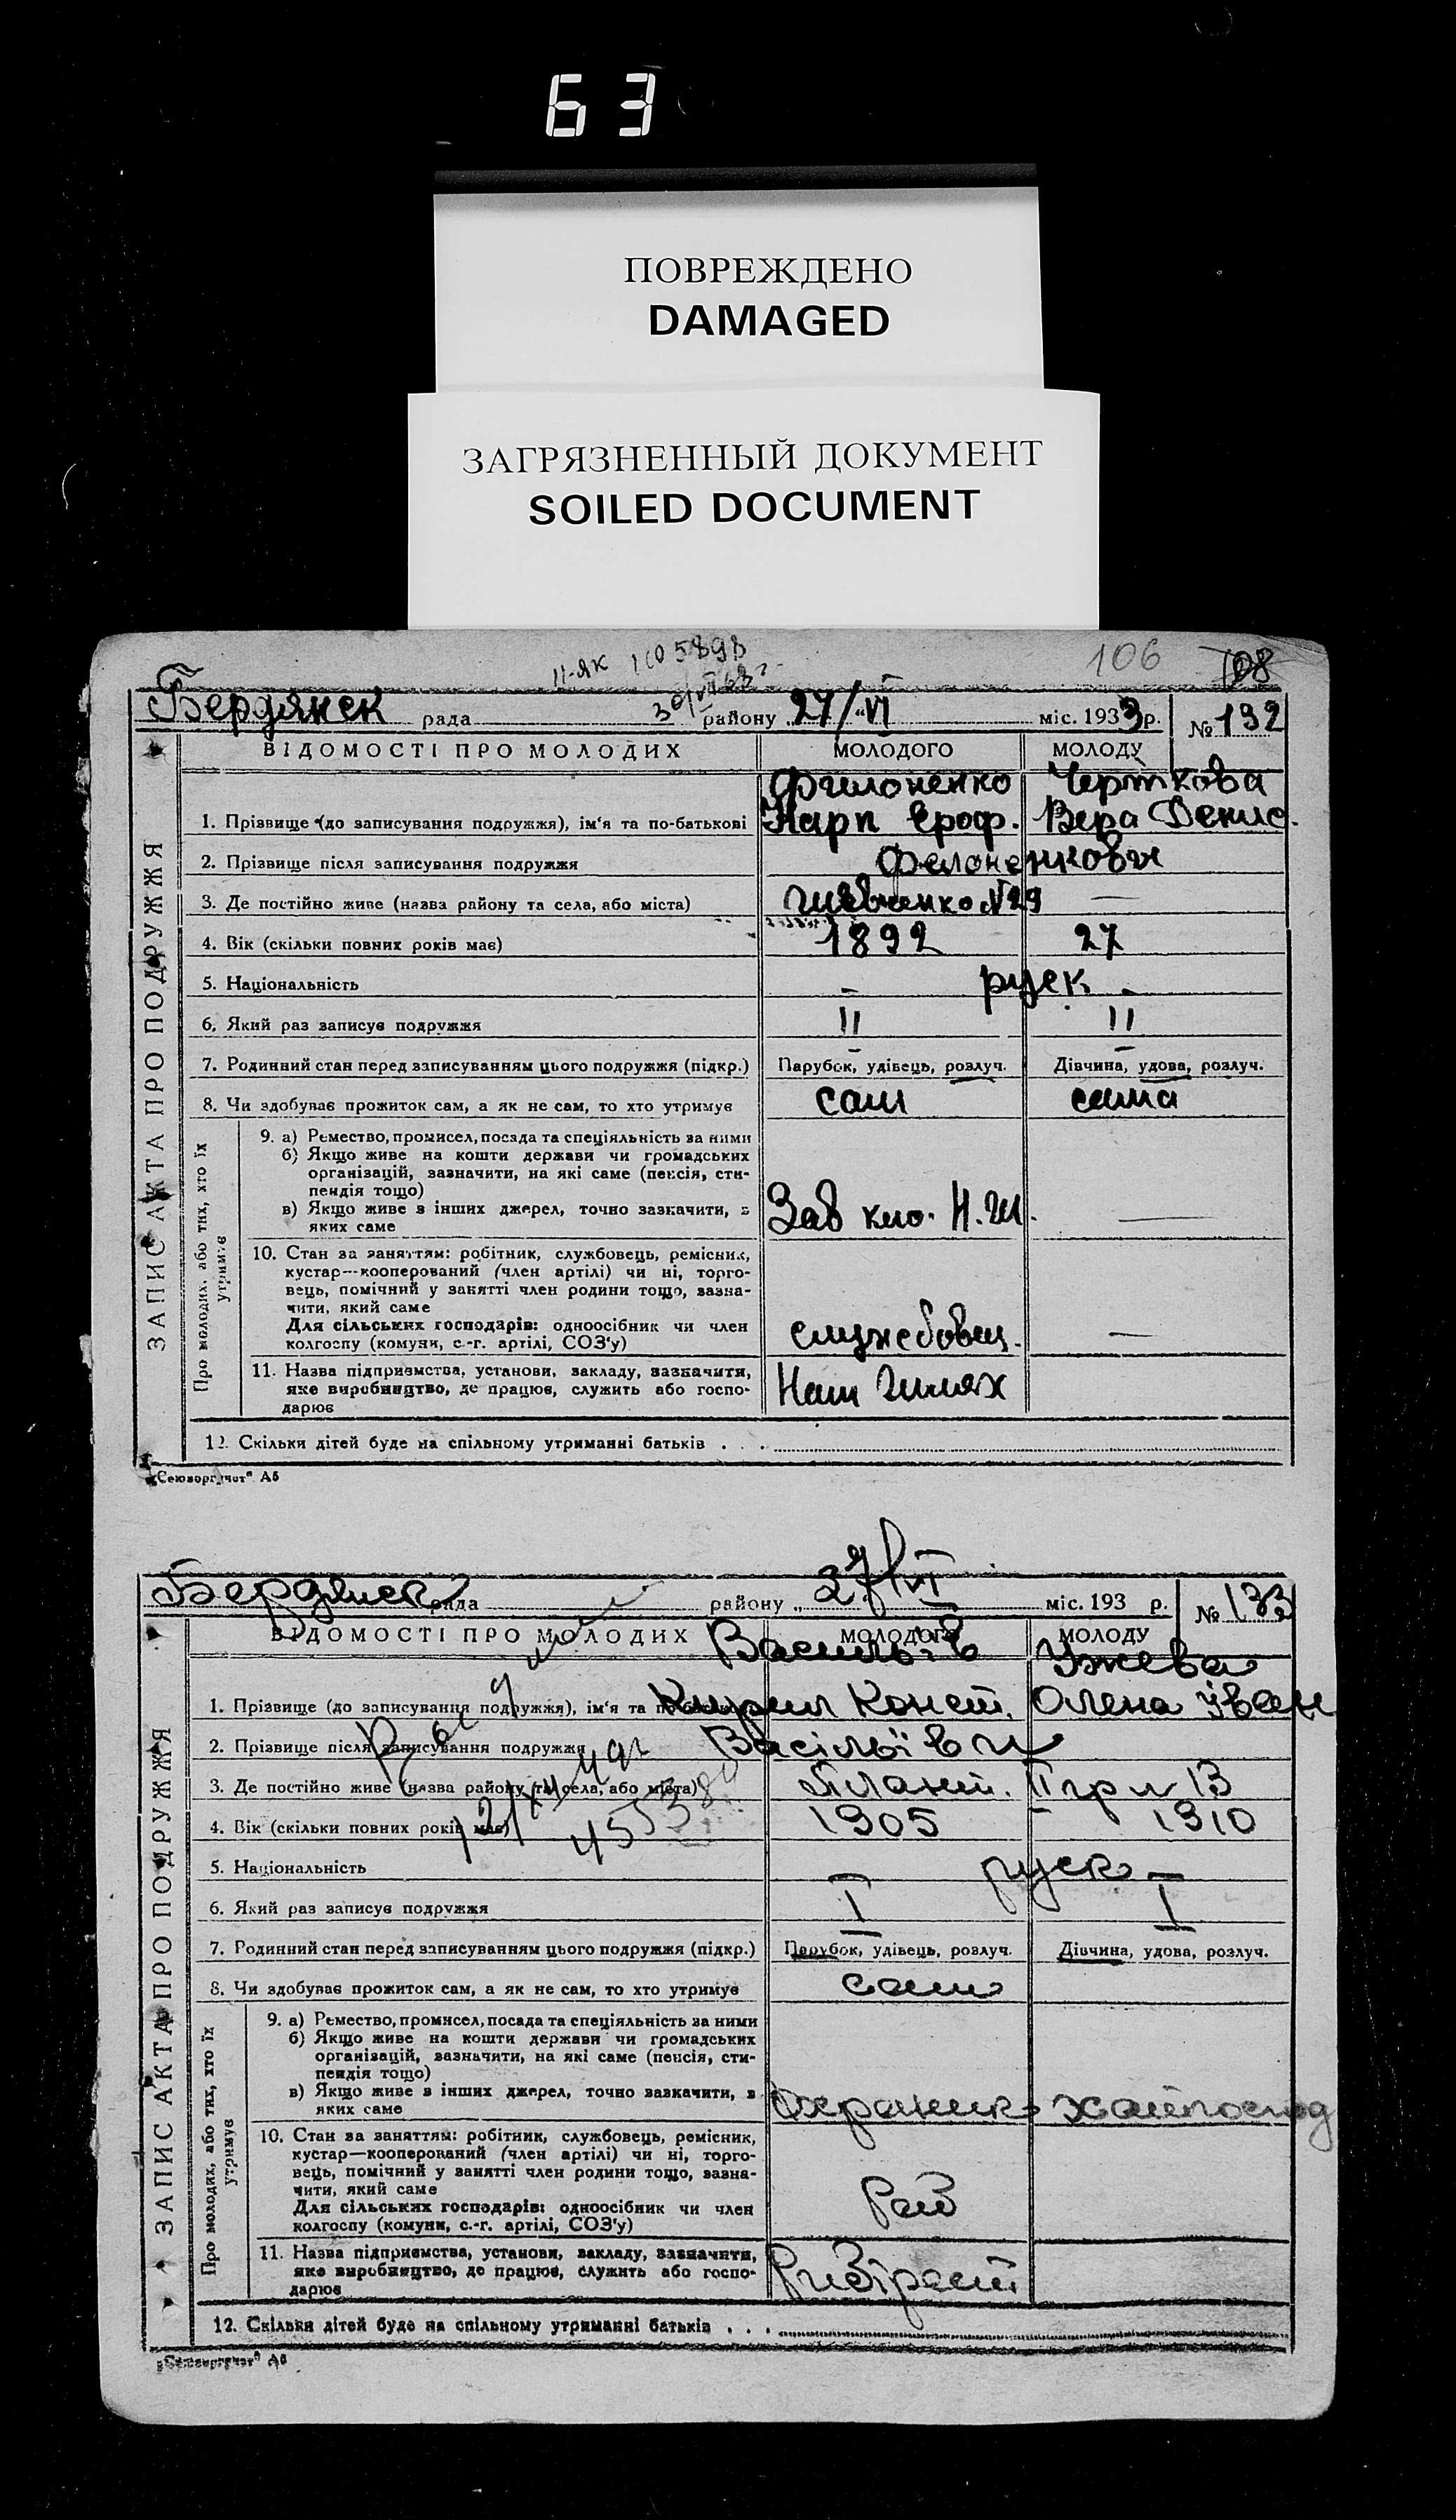 63
ПОВРЕЖДЕНО
DAMAGED
ЗАГРЯЗНЕННЫЙ ДОКУМЕНТ
SOILED DOCUMENT
II-ЯК
106 108
Бердянск рада району „27/VI міс. 1933 р. № 132
ВІДОМОСТІ ПРО МОЛОДИХ МОЛОДОГО МОЛОДУ
Филоненко Черткова
1. Прізвище (до записування подружжя), ім'я та по-батькові Карп Ероф. Вера Денис.
2. Прізвище після записування подружжя
3. Де постійно живе (назва району та села, або міста) Шевченко №29 —
4. Вік (скільки повних років має) 1892 27
5. Національність – руск. –
6. Який раз записує подружжя II II
7. Родинний стан перед записуванням цього подружжя (підкр.) Парубок, удівець, розлуч. Дівчина, удова, розлуч.
8. Чи здобуває прожиток сам, а як не сам, то хто утримує сам сама
9. а) Ремество, промисел, посада та спеціяльність за ними
б) Якщо живе на кошти держави чи громадських
організацій, зазначити, на які саме (пенсія, сти-
пендія тощо)
в) Якщо живе з інших джерел, точно зазначити, з
яких саме Зав кио. Н. Ш. —
10. Стан за заняттям: робітник, службовець, ремісник,
кустар—кооперований (член артілі) чи ні, торго-
вець, помічний у занятті член родини тощо, зазна-
чити, який саме
Для сільських господарів: одноосібник чи член
колгоспу (комуни, с.-г. артілі, СОЗ'у) службовец. —
11. Назва підприємства, установи, закладу, зазначити,
яке виробництво, де працює, служить або госпо-
дарює Наш Шлях
12. Скільки дітей буде на спільному утриманні батьків . . .
ЗАПИС АКТА ПРО ПОДРУЖЖЯ
Про молодих, або тих, хто їх
утримує
А5
Бердянск рада району „ 27/VI міс. 193 р. № 133
ВІДОМОСТІ ПРО МОЛОДИХ МОЛОДОГО МОЛОДУ
Васильїв Ужева
1. Прізвище (до записування подружжя), ім'я та по-батькові Кирил Конст. Олена Іван
2. Прізвище після записування подружжя Васільїви
3. Де постійно живе (назва району та села, або міста) II 13
4. Вік (скільки повних років має) 1905 1910
5. Національність руск
6. Який раз записує подружжя I I
7. Родинний стан перед записуванням цього подружжя (підкр.) Парубок, удівець, розлуч. Дівчина, удова, розлуч.
8. Чи здобуває прожиток сам, а як не сам, то хто утримує сам
9. а) Ремество, промисел, посада та спеціяльність за ними
б) Якщо живе на кошти держави чи громадських
організацій, зазначити, на які саме (пенсія, сти-
пендія тощо)
в) Якщо живе з інших джерел, точно зазначити, з
яких саме Охраник
10. Стан за заняттям: робітник, службовець, ремісник,
кустар—кооперований (член артілі) чи ні, торго-
вець, помічний у занятті член родини тощо, зазна-
чити, який саме
Для сільських господарів: одноосібник чи член
колгоспу (комуни, с.-г. артілі, СОЗ'у) Роб
11. Назва підприємства, установи, закладу, зазначити,
яке виробництво, де працює, служить або госпо-
дарює Рибтрест
12. Скільки дітей буде на спільному утриманні батьків . . .
ЗАПИС АКТА ПРО ПОДРУЖЖЯ
Про молодих, або тих, хто їх
утримує
А5